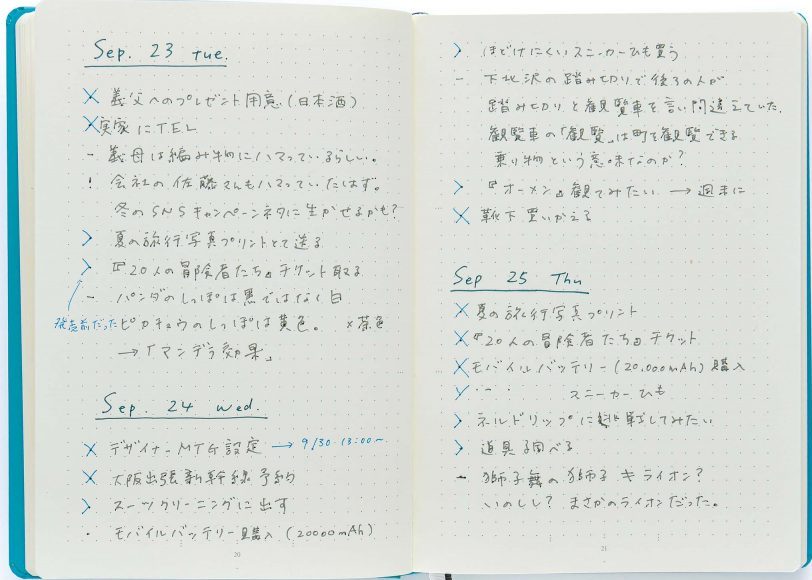 Sep. 23 tue.
× 義父へのプレゼント用意(日本酒)
× 実家にTEL
- 義母は編み物にハマっているらしい。
! 会社の佐藤さんもハマっていたはず。
冬のSNSキャンペーンネタに生かせるかも?
> 夏の旅行写真プリントして送る
> 『20人の冒険者たち』チケット取る
- パンダのしっぽは黒ではなく白
発売前だった
ピカチュウのしっぽは黄色。 ×茶色
→「マンデラ効果」
Sep. 24 wed.
× デザイナーMTG設定 → 9/30 13:00~
× 大阪出張新幹線予約
> スーツクリーニングに出す
· モバイルバッテリー購入(20000mAh)
20
> ほどけにくいスニーカーひも買う
- 下北沢の踏み切りで後ろの人が
踏み切りと観覧車を言い間違えていた。
観覧車の「観覧」は町を観覧できる
乗り物という意味なのか?
> 『オーメン』観てみたい → 週末に
× 靴下買いかえる
Sep 25 Thu
× 夏の旅行写真プリント
× 『20人の冒険者たち』チケット
× モバイルバッテリー(20,000mAh)購入
スニーカーひも
> ネルドリップに挑戦してみたい
> 道具調べる
- 獅子舞の獅子 キライオン?
いのしし? まさかのライオンだった。
21